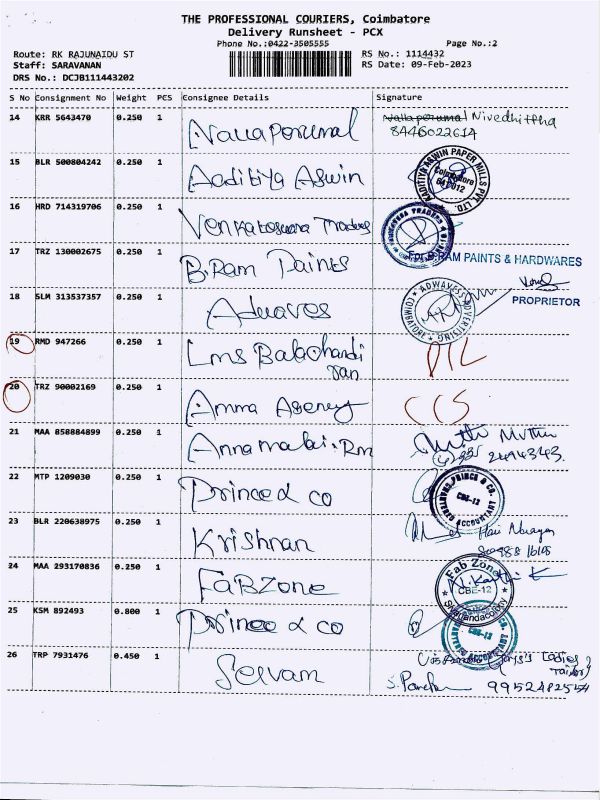 THE PROFESSIONAL COURIERS, Coimbatore
Delivery Runsheet - PCX
Phone No.:0422-3505555 Page No.:2
Route: RK RAJUNAIDU ST RS No.: 1114432
Staff: SARAVANAN RS Date: 09-Feb-2023
DRS No.: DCJB111443202
S No Consignment No Weight PCS Consignee Details Signature
14 KRR 5643470 0.250 1 Nallaperumal Nallaperumal Nivedhittha
8446022614
15 BLR 500804242 0.250 1 Aaditiya Aswin AADITIYA ASWIN PAPER MILLS PVT. LTD. Coimbatore 641 012
16 HRD 714319706 0.250 1 Venkateswara Traders
17 TRZ 130002675 0.250 1 B.Ram Paints For B.RAM PAINTS & HARDWARES
PROPRIETOR
18 SLM 313537357 0.250 1 Adwaves ADWAVESS ADVERTISING COIMBATORE
19 RMD 947266 0.250 1 Lms Balachandi
ran DIL
20 TRZ 90002169 0.250 1 Amma Agency CCS
21 MAA 858884899 0.250 1 Annamalai.Rm Muthu
22 MTP 1209030 0.250 1 Prince & co PRINCE & CO. CHARTERED ACCOUNTANT CBE-12
23 BLR 220638975 0.250 1 Krishnan Hari Narayan
24 MAA 293170836 0.250 1 FABZONE Fab Zone CBE-12
25 KSM 892493 0.800 1 Prince & co CBE-12
26 TRP 7931476 0.450 1 Selvam Ladies
Tailor
9952482554